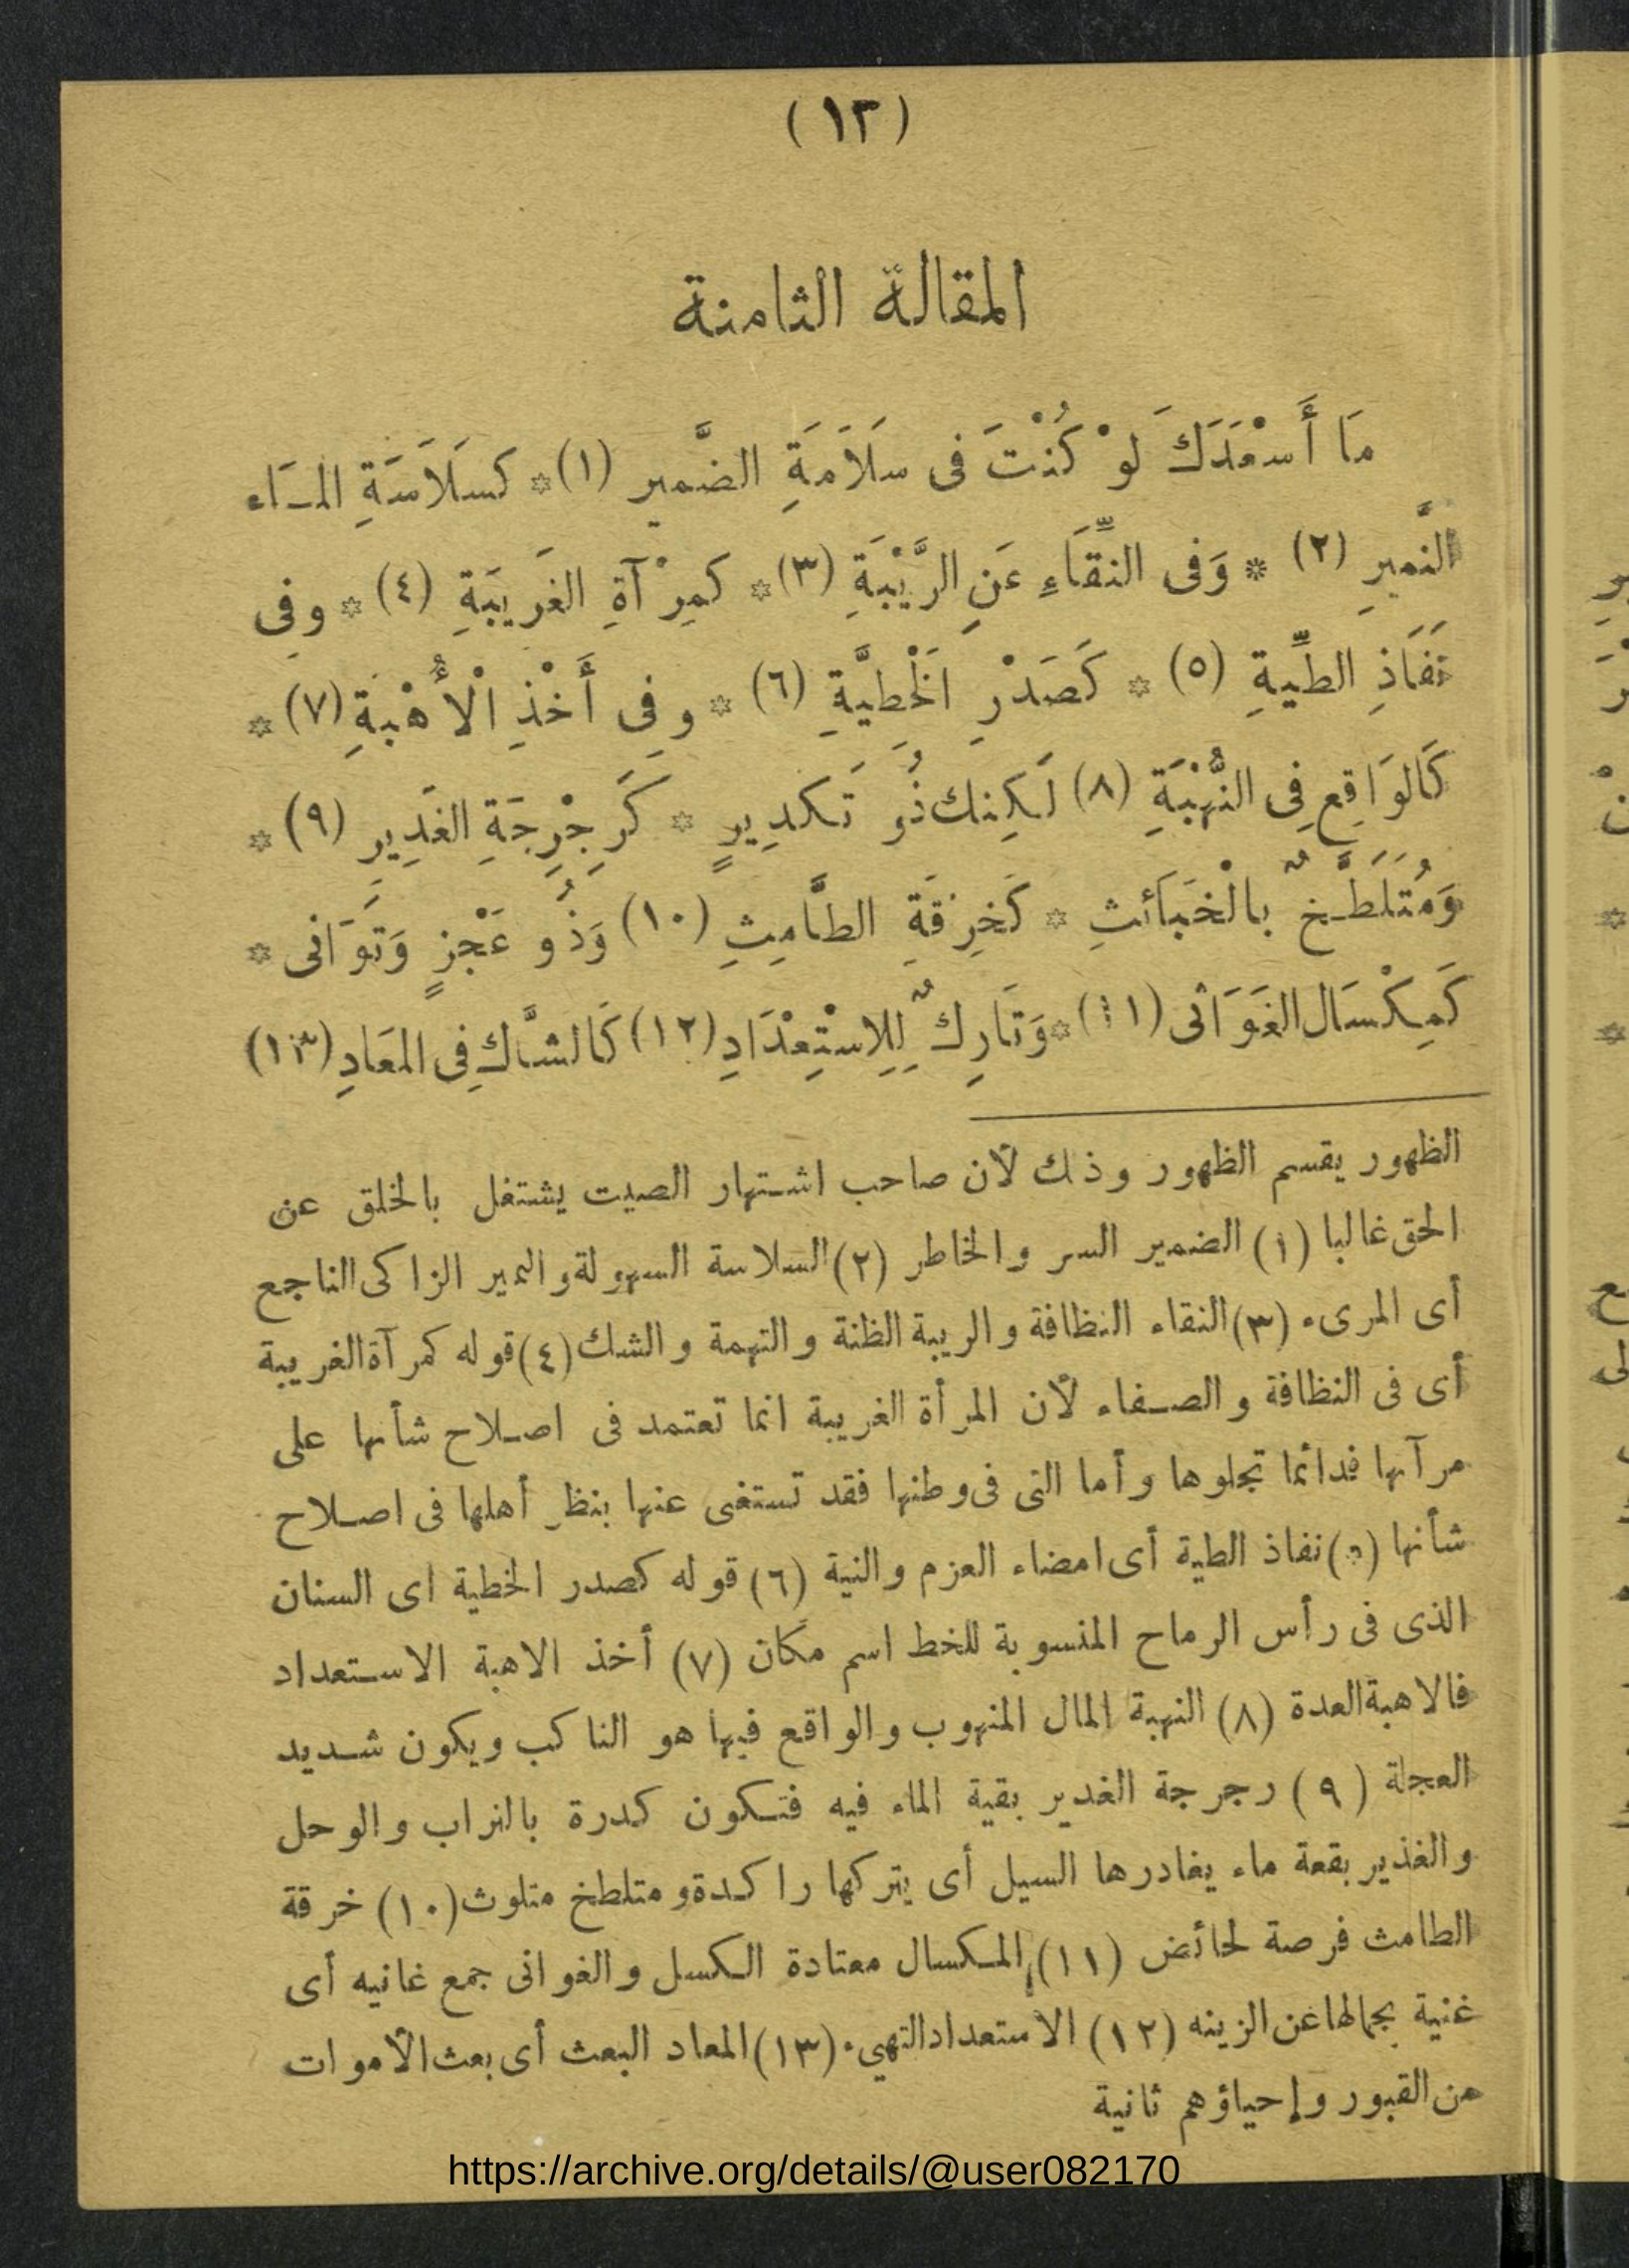 (١٣)
المقالة الثامنة
مَا أَسْعَدَكَ لَوْ كُنْتَ فى سَلَامَةِ الضَّمير (١)* كسَلَاسَةِ المـَاء
النَّميرِ (٢) * وَفى النَّقَاءِ عَنِ الرَّيْبَةِ (٣)* كمِرْآةِ الغَرِيبَةِ (٤) * وفِى
نَفَاذِ الطِّيةِ (٥) * كَصَدْرِ الَخْطيَّةِ (٦) * وفِى أَخْذِ الْأُهْبَةِ (٧) *
كَالوَاقِعِ فِى النُّهْبَةِ (٨) لَكِنك ذُو تَكدِيرٍ * كَرِجْرِجَةِ الغَدِيرِ (٩) *
وَمُتَلَطَّـخٌ بالْخَبَائثِ * كَخِرْقَةِ الطَّامِثِ (١٠) وَذُو عَجْزٍ وَتَوَانى *
كَمِكْسَال الغَوَانى (١١)* وَتَارِكٌ لِلِاسْتِعْدَادِ (١٢) كَالشَّاكِ فِى المعَادِ (١٣)
الظهور يقسم الظهور وذلك لأن صاحب اشـتهار الصيت يشتغل بالخلق عن
الحق غالبا (١) الضمير السر والخاطر (٢) السلاسة السهولة والنمير الزاكى الناجع
أى المرىء (٣) النقاء النظافة والريبة الظنة والتهمة والشك (٤) قوله كمرآة الغريبة
أى فى النظافة والصـفاء لأن المرأة الغريبة انما تعتمد فى اصـلاح شأنها على
مرآنها فدائما تجلوها وأما التى فى وطنها فقد تستغنى عنها بنظر أهلها فى اصـلاح
شأنها (٥) نفاذ الطية أى امضاء العزم والنية (٦) قوله كصدر الخطية اى السنان
الذى فى رأس الرماح المنسوبة للخط اسم مكان (٧) أخذ الاهبة الاسـتعداد
فالاهبة العدة (٨) النهبة المال المنهوب والواقع فيها هو الناكب ويكون شـديد
العجلة (٩) رجرجة الغدير بقية الماء فيه فتـكون كدرة بالتراب والوحل
والغذير بقعة ماء يغادرها السيل أى يتركها راكدة ومتلطخ متلوث (١٠) خرقة
الطامث فرصة لحائض (١١) المـكسال معتادة الـكسل والغوانى جمع غانيه أى
غنية بجمالها عن الزينه (١٢) الاستعداد التهيء (١٣) المعاد البعث أى بعث الأموات
من القبور وإحياؤهم ثانية
https://archive.org/details/@user082170